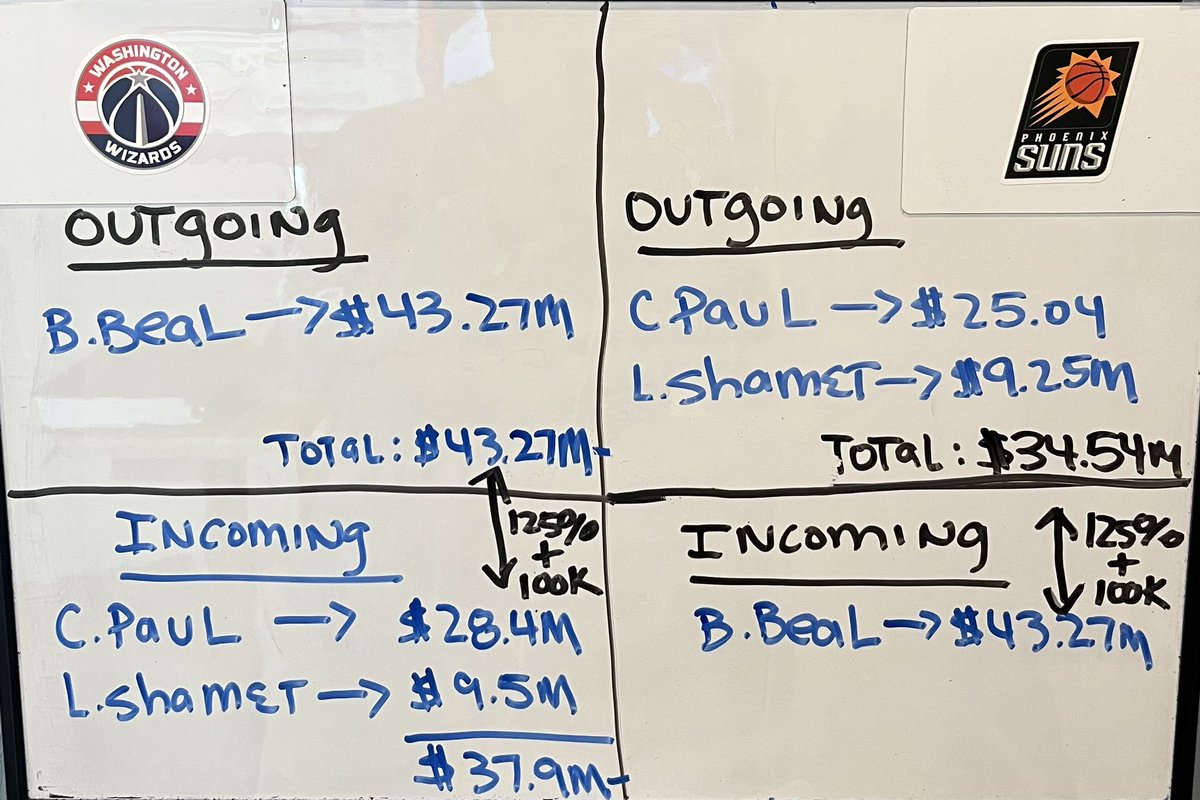 WASHINGTON
WIZARDS
OUTgOINg
B.BeaL → $43.27M
TOTaL: $43.27M-
INComINg
C.PauL → $28.4M
L.ShamET → $9.5M
$37.9M-
125%
+
100K
PHOENIX
SUNS
OUTgOINg
C.PauL → $25.04
L.ShamET → $9.25M
TOTaL: $34.54M
INComINg
B.BeaL → $43.27M
125%
+
100K